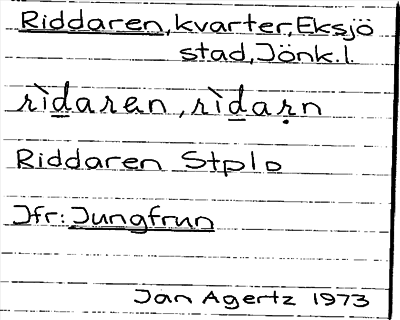 Riddaren, kvarter, Eksjö
stad, Jönk.l.
rìdaren, rìdaṛn
Riddaren Stplo
Jfr: Jungfrun
Jan Agertz 1973